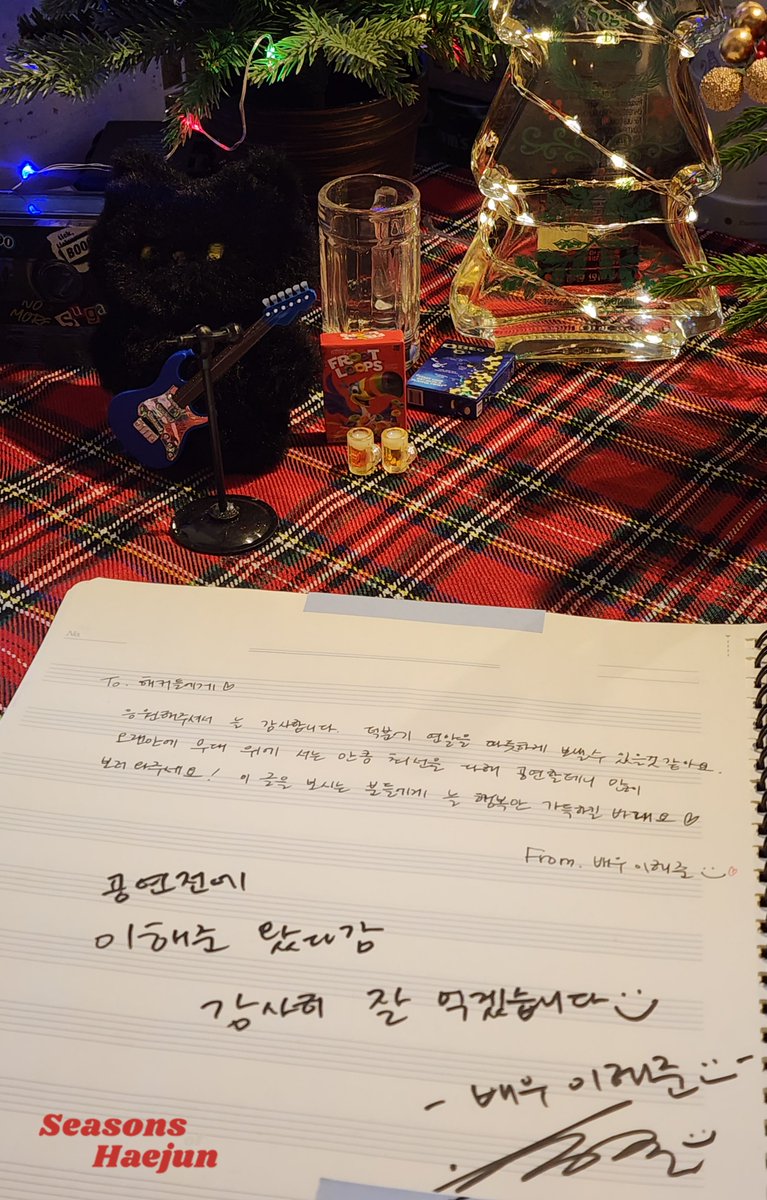 BOO
NO
MORE
Suga
FROOT
LOOPS
No.
To. 해커들에게♡
응원해주셔서 늘 감사합니다. 덕분에 연말을 따뜻하게 보낼수 있을것같아요.
오랜만에 무대 위에 서는 만큼 최선을 다해 공연할테니 많이
보러 와주세요! 이 글을 보시는 분들에게 늘 행복만 가득하길 바래요♡
From. 배우 이해준
공연전에
이해준 왔다감
감사히 잘 먹겠습니다
- 배우 이해준 -
Seasons
Haejun